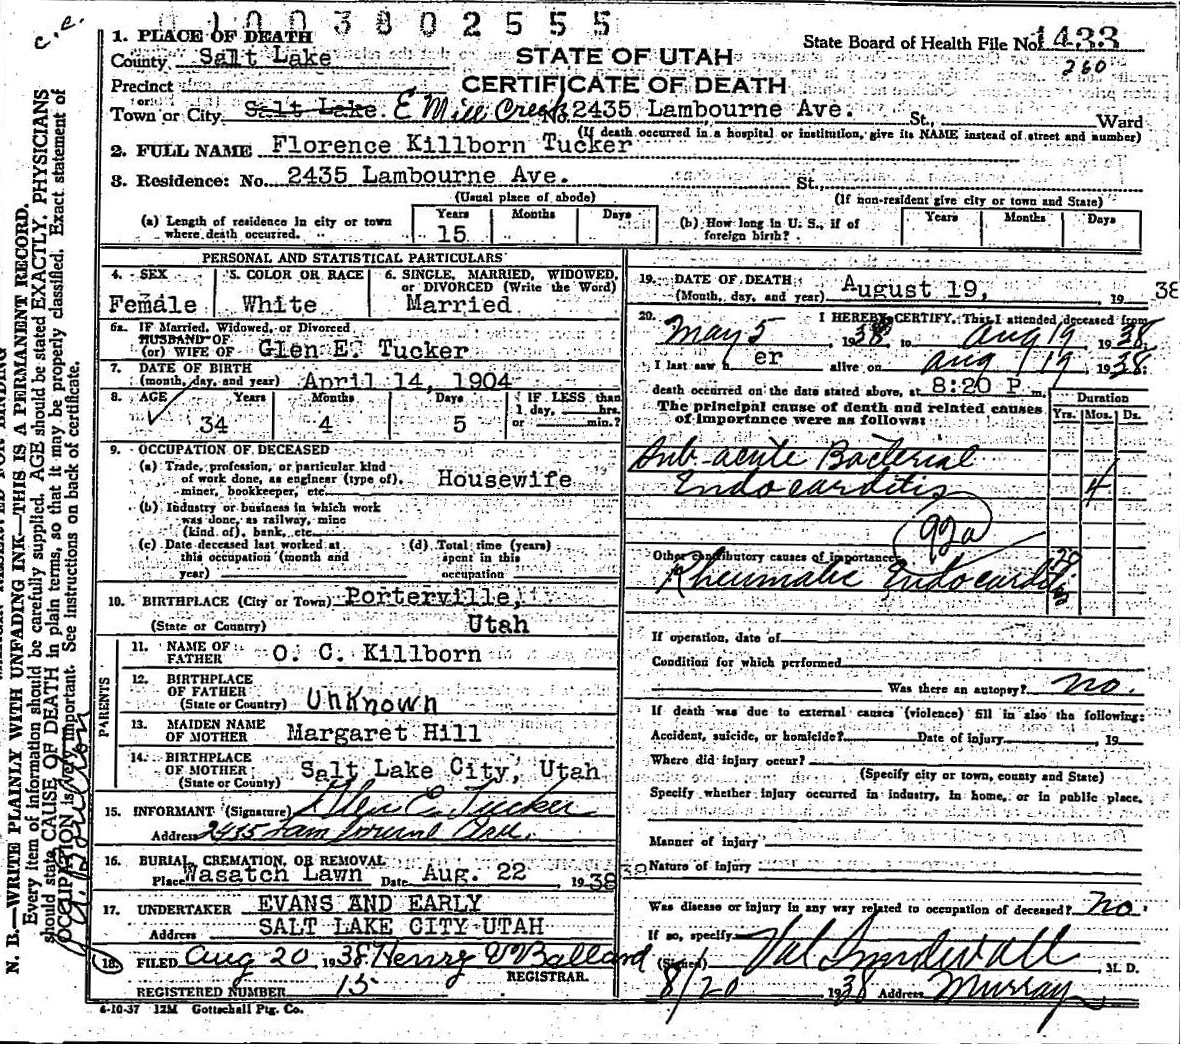 01003802555
c.c.
STATE OF UTAH
CERTIFICATE OF DEATH
State Board of Health File No. 1433
260
1. PLACE OF DEATH
County Salt Lake
Precinct
or
Town or City Salt Lake. E Mill Creek No. 2435 Lambourne Ave. St., Ward
(If death occurred in a hospital or institution, give its NAME instead of street and number)
2. FULL NAME Florence Killborn Tucker
3. Residence: No. 2435 Lambourne Ave. St.,
(Usual place of abode)
(If non-resident give city or town and State)
(a) Length of residence in city or town where death occurred.
Years Months Days
15
(b) How long in U. S., if of foreign birth?
Years Months Days
PERSONAL AND STATISTICAL PARTICULARS
4. SEX
Female
5. COLOR OR RACE
White
6. SINGLE, MARRIED, WIDOWED, or DIVORCED (Write the Word)
Married
6a. IF Married, Widowed, or Divorced
HUSBAND OF
(or) WIFE OF Glen E. Tucker
7. DATE OF BIRTH
(month, day, and year) April 14, 1904
8. AGE Years Months Days IF LESS than
1 day, hrs.
or min.?
34 4 5
9. OCCUPATION OF DECEASED
(a) Trade, profession, or particular kind
of work done, as engineer (type of),
miner, bookkeeper, etc.
Housewife
(b) Industry or business in which work
was done, as railway, mine
(kind of), bank, etc.
(c) Date deceased last worked at
this occupation (month and
year)
(d) Total time (years)
spent in this
occupation
10. BIRTHPLACE (City or Town) Porterville,
(State or Country) Utah
PARENTS
11. NAME OF
FATHER O. C. Killborn
12. BIRTHPLACE
OF FATHER
(State or Country) Unknown
13. MAIDEN NAME
OF MOTHER Margaret Hill
14. BIRTHPLACE
OF MOTHER
(State or County) Salt Lake City, Utah
15. INFORMANT (Signature) Glen E. Tucker
Address 2435 Lambourne Ave.
16. BURIAL, CREMATION, OR REMOVAL
Place Wasatch Lawn Date Aug. 22 1938
17. UNDERTAKER EVANS AND EARLY
Address SALT LAKE CITY UTAH
18. FILED Aug 20 1938 Henry W Ballard
REGISTRAR.
REGISTERED NUMBER 15
4-10-37 12M Gottschall Ptg. Co.
19. DATE OF DEATH
(Month, day, and year) August 19, 1938
20. I HEREBY CERTIFY, That I attended deceased from
May 5, 1938 to Aug 19 1938
I last saw her alive on Aug 19 1938
death occurred on the date stated above, at 8:20 P m.
The principal cause of death and related causes
of importance were as follows:
Duration
Yrs. Mos. Ds.
Sub-acute Bacterial
Endocarditis 4
92a
Other contributory causes of importance
Rheumatic Endocarditis 20
If operation, date of
Condition for which performed
Was there an autopsy? no.
If death was due to external causes (violence) fill in also the following:
Accident, suicide, or homicide? Date of injury , 19
Where did injury occur?
(Specify city or town, county and State)
Specify whether injury occurred in industry, in home, or in public place.
Manner of injury
Nature of injury
Was disease or injury in any way related to occupation of deceased? no.
If so, specify
(Signed) Val Sundwall, M. D.
8/20 1938 Address Murray
N. B.—WRITE PLAINLY WITH UNFADING INK—THIS IS A PERMANENT RECORD.
Every item of information should be carefully supplied. AGE should be stated EXACTLY. PHYSICIANS
should state CAUSE OF DEATH in plain terms, so that it may be properly classified. Exact statement of
OCCUPATION is very important. See instructions on back of certificate.